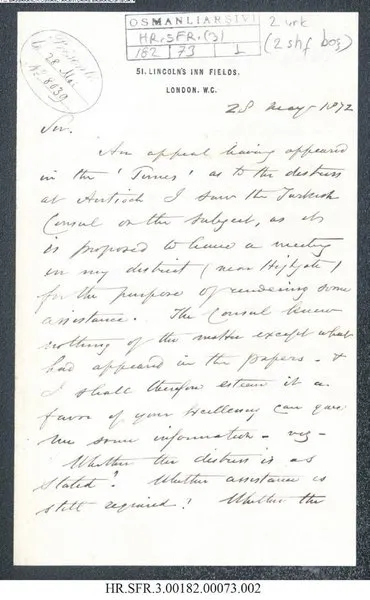 OSMANLI ARŞİVİ
HR.SFR.(3)
182 73 1
2 vrk
(2 shf boş)
28 Mai
No 8039
51. LINCOLN'S INN FIELDS.
LONDON. W.C.
28 May 1872
Sir.
An appeal having appeared
in the 'Times' as to the distress
at Antioch I saw the Turkish
Consul on the subject, as it
is proposed to have a meeting
in my district (near Highgate)
for the purpose of rendering some
assistance. The Consul knew
nothing of the matter except what
had appeared in the papers - &
I shall therefore esteem it a
favor if your Excellency can give
me some information - viz -
Whether the distress is as
stated? Whether assistance is
still required? Whether the
HR.SFR.3.00182.00073.002